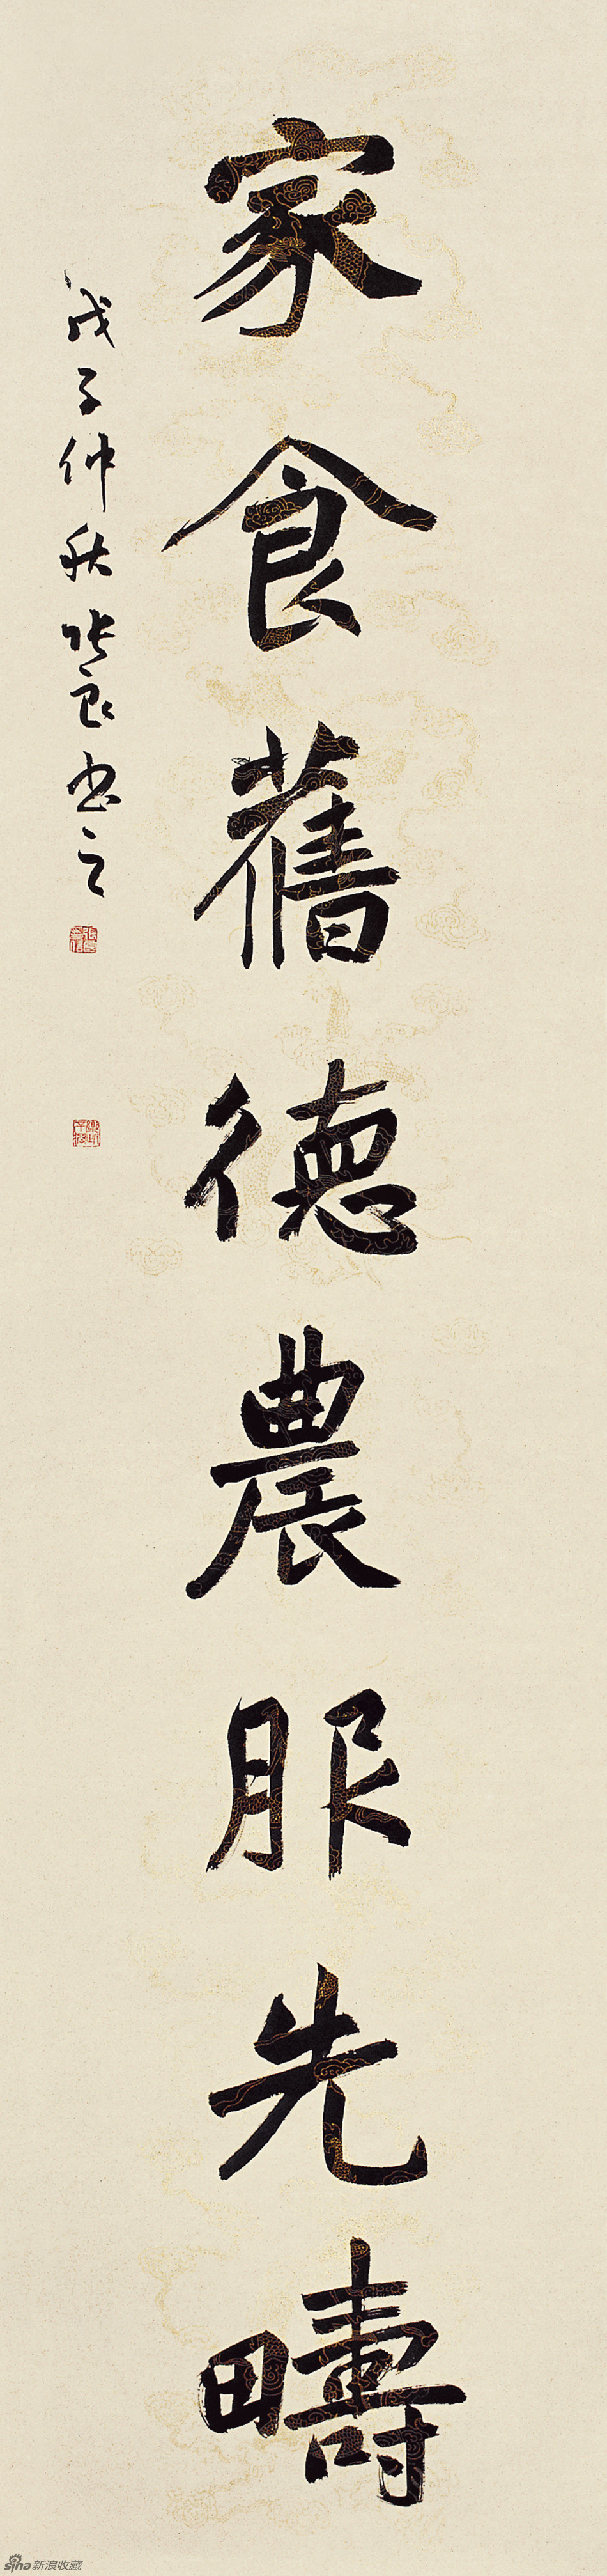 家食舊德農服先疇
戊子仲秋張良書之
sina新浪收藏